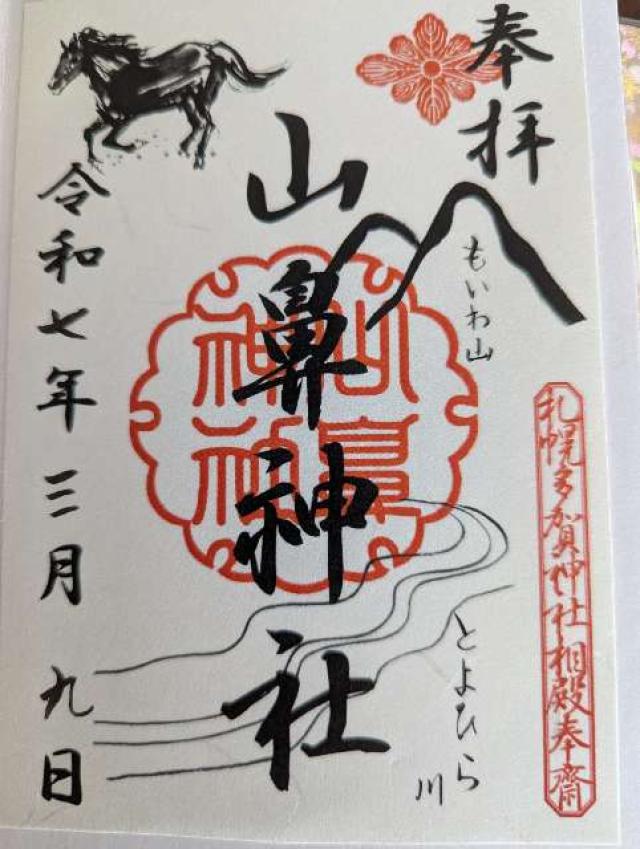 奉拝
もいわ山
札幌多賀神社相殿奉齋
とよひら川
山鼻神社
山鼻神社
令和七年三月九日